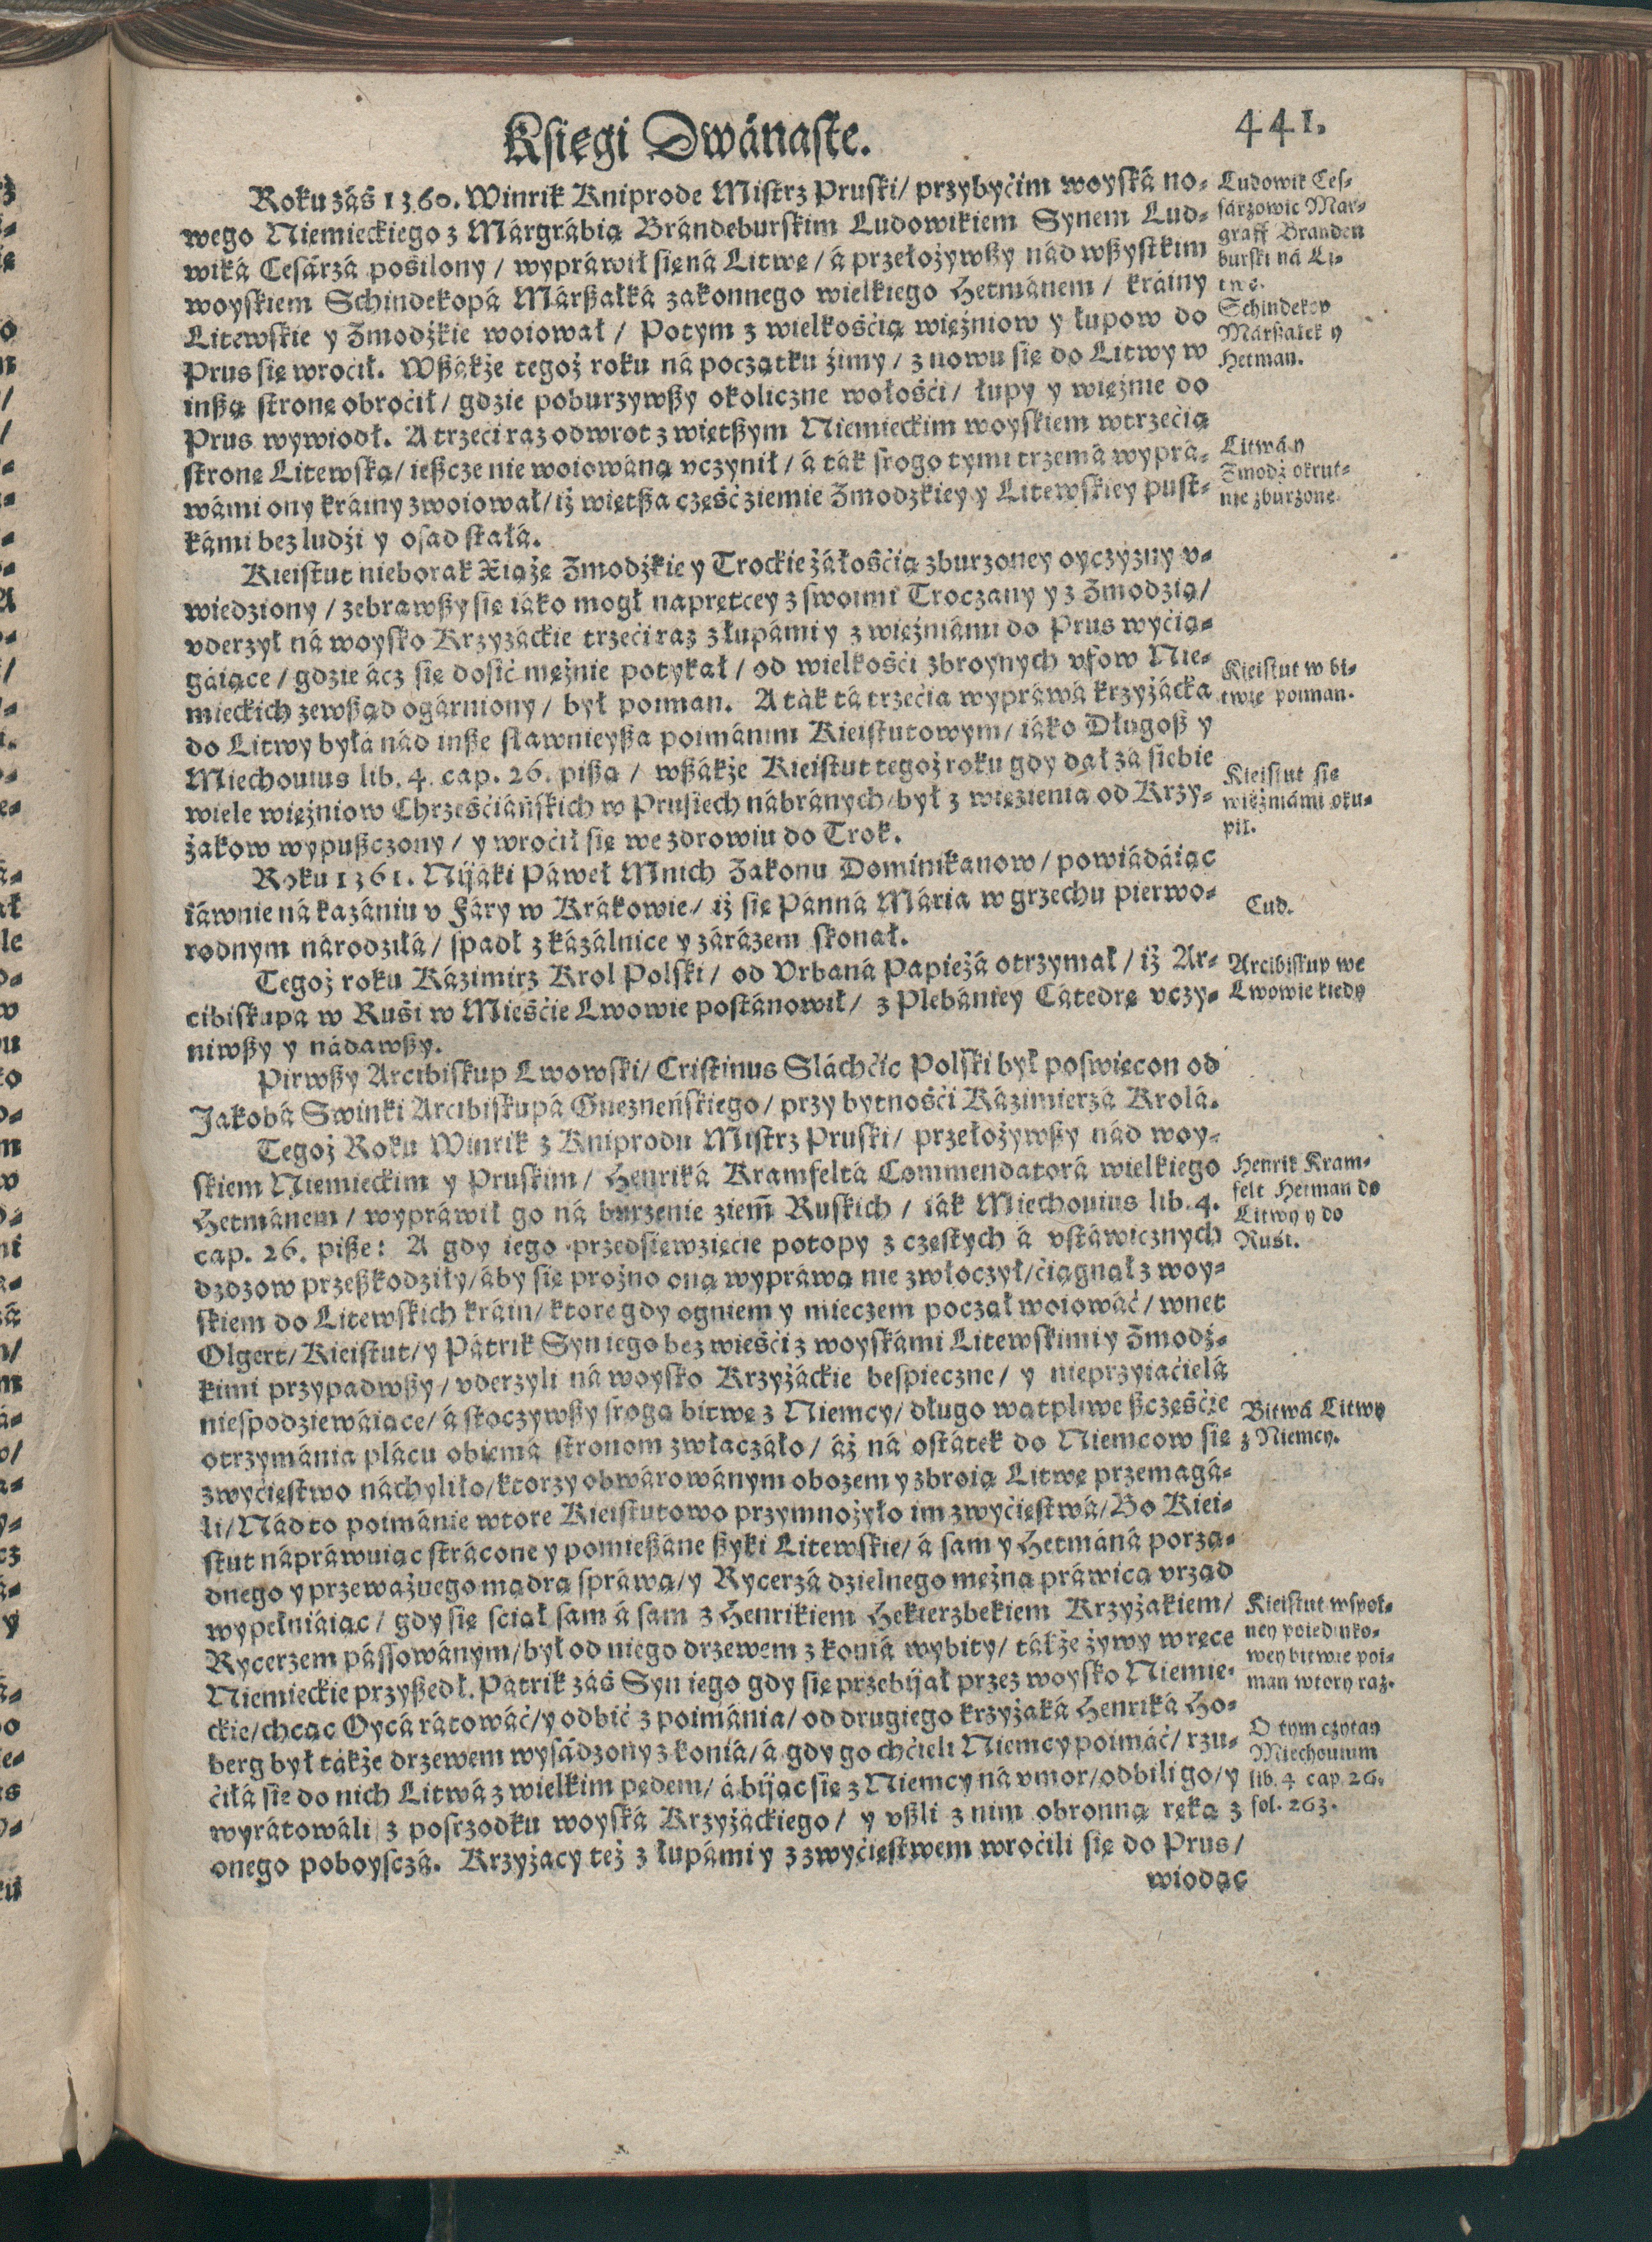 Księgi Dwánaste.
441.
Roku záś 1360. Winrik Kniprode Mistrz Pruski/ przybyćim woyská no-
wego Niemieckiego z Márgrábią Brándeburskim Ludowikiem Synem Lud-
wiká Cesárzá pośilony / wypráwił się ná Litwę / á przełożywßy nád wßystkim
woyskiem Schindekopá Márßałká zakonnego wielkiego Hetmánem / kráiny
Litewskie y Żmodźkie woiował / Potym z wielkośćią więźniow y łupow do
Prus się wroćił. Wßákże tegoż roku ná początku źimy / z nowu się do Litwy w
inßą stronę obroćił / gdzie poburzywßy okoliczne wołośći / łupy y więźnie do
Prus wywiodł. A trzeći raz odwrot z więtßym Niemieckim woyskiem w trzećią
stronę Litewską / ießcze nie woiowáną vczynił / á ták srogo tymi trzemá wyprá-
wámi ony kráiny zwoiował / iż więtßa część ziemie Żmodzkiey y Litewskiey pust-
kámi bez ludźi y osad stałá.
Kieistut nieborak Xiążę Żmodźkie y Trockie żáłośćią zburzoney oyczyzny v-
wiedziony / zebrawßy się iáko mogł naprętcey z swoimi Troczany y z Żmodzią /
vderzył ná woysko Krzyżáckie trzeći raz z łupámi y z więźniámi do Prus wyćią-
gáiące / gdzie ácz się dosić mężnie potykał / od wielkośći zbroynych vfow Nie-
mieckich zewßąd ogárniony / był poiman. A ták tá trzećia wypráwá krzyżácka
do Litwy byłá nád inße sławnieyßa poimánim Kieistutowym / iáko Długoß y
Miechouius lib. 4. cap. 26. pißą / wßákże Kieistut tegoż roku gdy dał zá siebie
wiele więźniow Chrześćiáńskich w Prusiech nábránych / był z więzienia od Krzy-
żakow wypußczony / y wroćił się we zdrowiu do Trok.
Roku 1361. Nijáki Páweł Mnich Zakonu Dominikanow / powiádáiąc
iáwnie ná kazániu v Fáry w Krákowie / iż się Pánná Mária w grzechu pierwo-
rodnym národziłá / spadł z kázálnice y zárázem skonał.
Tegoż roku Kázimirz Krol Polski / od Vrbaná Papieżá otrzymał / iż Ar-
cibiskupa w Ruśi w Mieśćie Lwowie postánowił / z Plebániey Cátedrę vczy-
niwßy y nádawßy.
Pirwßy Arcibiskup Lwowski / Cristinus Sláchćic Polski był poswięcon od
Jakobá Swinki Arcibiskupá Gnezneńskiego / przy bytnośći Kázimierzá Krolá.
Tegoż Roku Winrik z Kniprodu Mistrz Pruski / przełożywßy nád woy-
skiem Niemieckim y Pruskim / Henriká Kramfeltá Commendatorá wielkiego
Hetmánem / wypráwił go ná burzenie ziem̄ Ruskich / iák Miechouius lib. 4.
cap. 26. piße: A gdy iego przedsięwzięcie potopy z częstych á vstáwicznych
dzdzow przeßkodziły / áby się prozno oną wypráwą nie zwłoczył / ćiągnął z woy-
skiem do Litewskich kráin / ktore gdy ogniem y mieczem począł woiowáć / wnet
Olgert / Kieistut / y Pátrik Syn iego bez wieśći z woyskámi Litewskimi y Żmodź-
kimi przypadwßy / vderzyli ná woysko Krzyżáckie bespieczne / y nieprzyiaćielá
niespodziewáiące / á stoczywßy srogą bitwę z Niemcy / długo wątpliwe ßczęśćie
otrzymánia plácu obiemá stronom zwłaczáło / áż ná ostátek do Niemcow się
zwyćięstwo náchyliło / ktorzy obwárowánym obozem y zbroią Litwę przemagá-
li / Nád to poimánie wtore Kieistutowo przymnożyło im zwyćięstwá / Bo Kiei-
stut nápráwuiąc strácone y pomießáne ßyki Litewskie / á sam y Hetmáná porzą-
dnego y przeważnego mądrą spráwą / y Rycerzá dzielnego mężną práwicą vrząd
wypełniáiąc / gdy się sciął sam á sam z Henrikiem Hekierzbekiem Krzyżakiem /
Rycerzem pássowánym / był od niego drzewem z koniá wybity / tákże żywy w ręce
Niemieckie przyßedł. Pátrik záś Syn iego gdy się przebijał przez woysko Niemie-
ckie / chcąc Oycá rátowáć / y odbić z poimánia / od drugiego krzyżaká Henriká Ho-
berg był tákże drzewem wysádzony z koniá / á gdy go chćieli Niemcy poimáć / rzu-
ćiłá sie do nich Litwá z wielkim pędem / á bijąc się z Niemcy ná vmor / odbili go / y
wyrátowáli z pośrzodku woyská Krzyżáckiego / y vßli z nim obronną ręką z
onego poboysczá. Krzyżacy też z łupámi y z zwyćięstwem wroćili się do Prus /
wiodąc
Ludowik Ces-
sárzowic Mar-
graff Branden
burski ná Li-
twę.
Schindekop
Márßałek y
Hetman.
Litwá y
Żmodź okrut-
nie zburzone.
Kieistut w bi-
twie poiman.
Kieistut się
więźniámi oku-
pił.
Cud.
Arcibiskup we
Lwowie kiedy
Henrik Kram-
felt Hetman do
Litwy y do
Ruśi.
Bitwá Litwy
z Niemcy.
Kieistut w spol-
ney poiedinko-
wey bitwie poi-
man wtory raz.
O tym czytay
Miechouium
lib. 4 cap. 26.
fol. 263.